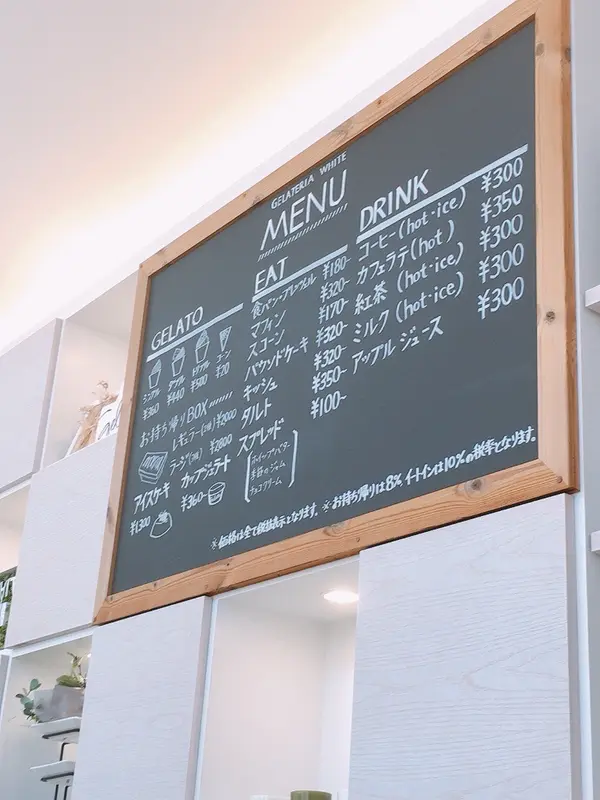 GELATERIA WHITE
MENU
GELATO
シングル ダブル トリプル コーン
¥360 ¥440 ¥500 ¥20
お持ち帰りBOX
レギュラー ¥2000
ラージ ¥2800
アイスケーキ カップジェラート
¥1300 ¥360~
EAT
食パン・プレッツェル ¥180~
マフィン ¥320~
スコーン ¥170~
パウンドケーキ ¥320~
キッシュ ¥320~
タルト ¥350~
スプレッド ¥100~
ホイップバター
季節のジャム
チョコクリーム
DRINK
コーヒー(hot・ice) ¥300
カフェラテ(hot) ¥350
紅茶(hot・ice) ¥300
ミルク(hot・ice) ¥300
アップルジュース ¥300
※価格は全て税抜表示となります。※お持ち帰りは8%、イートインは10%の税率となります。